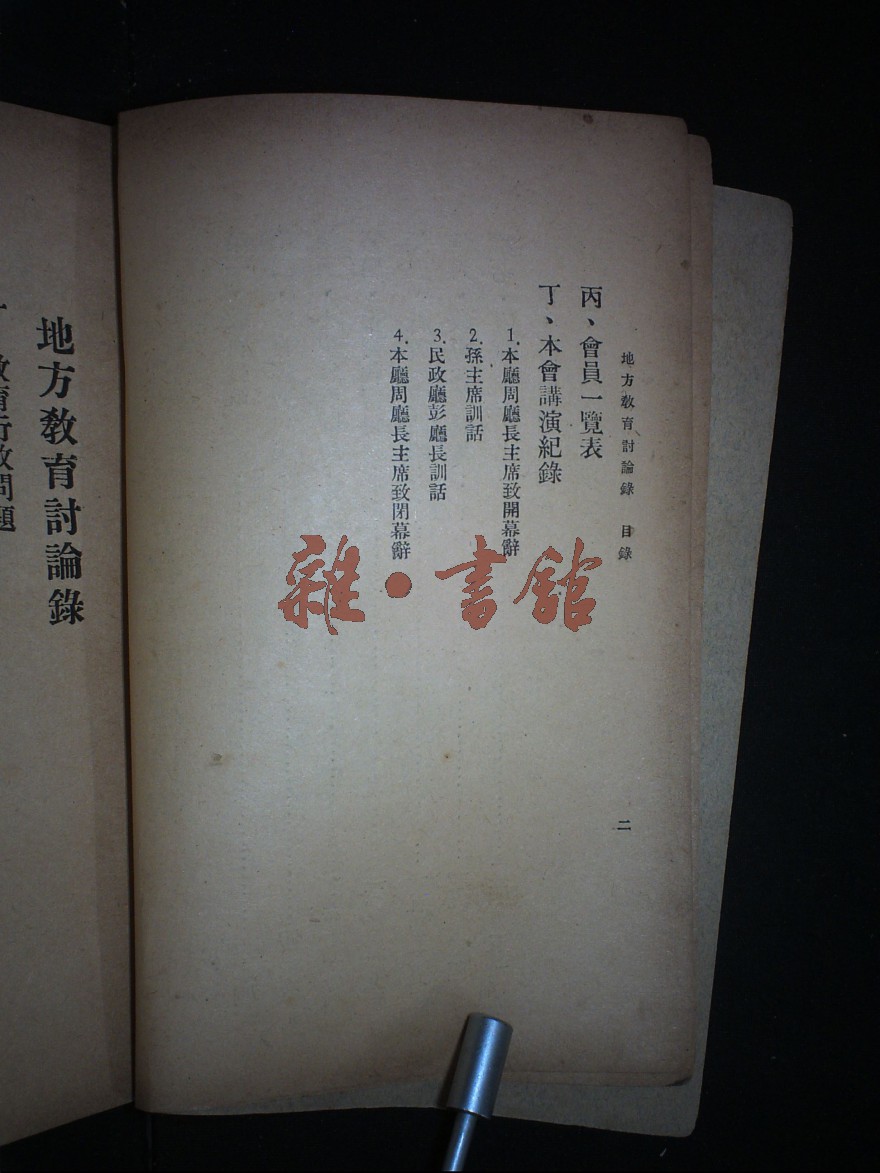 地方教育討論錄 目錄
二
丙、會員一覽表
丁、本會講演紀錄
1.本廳周廳長主席致開幕辭
2.孫主席訓話
3.民政廳彭廳長訓話
4.本廳周廳長主席致閉幕辭
雜·書館
地方教育討論錄
教育行政問題